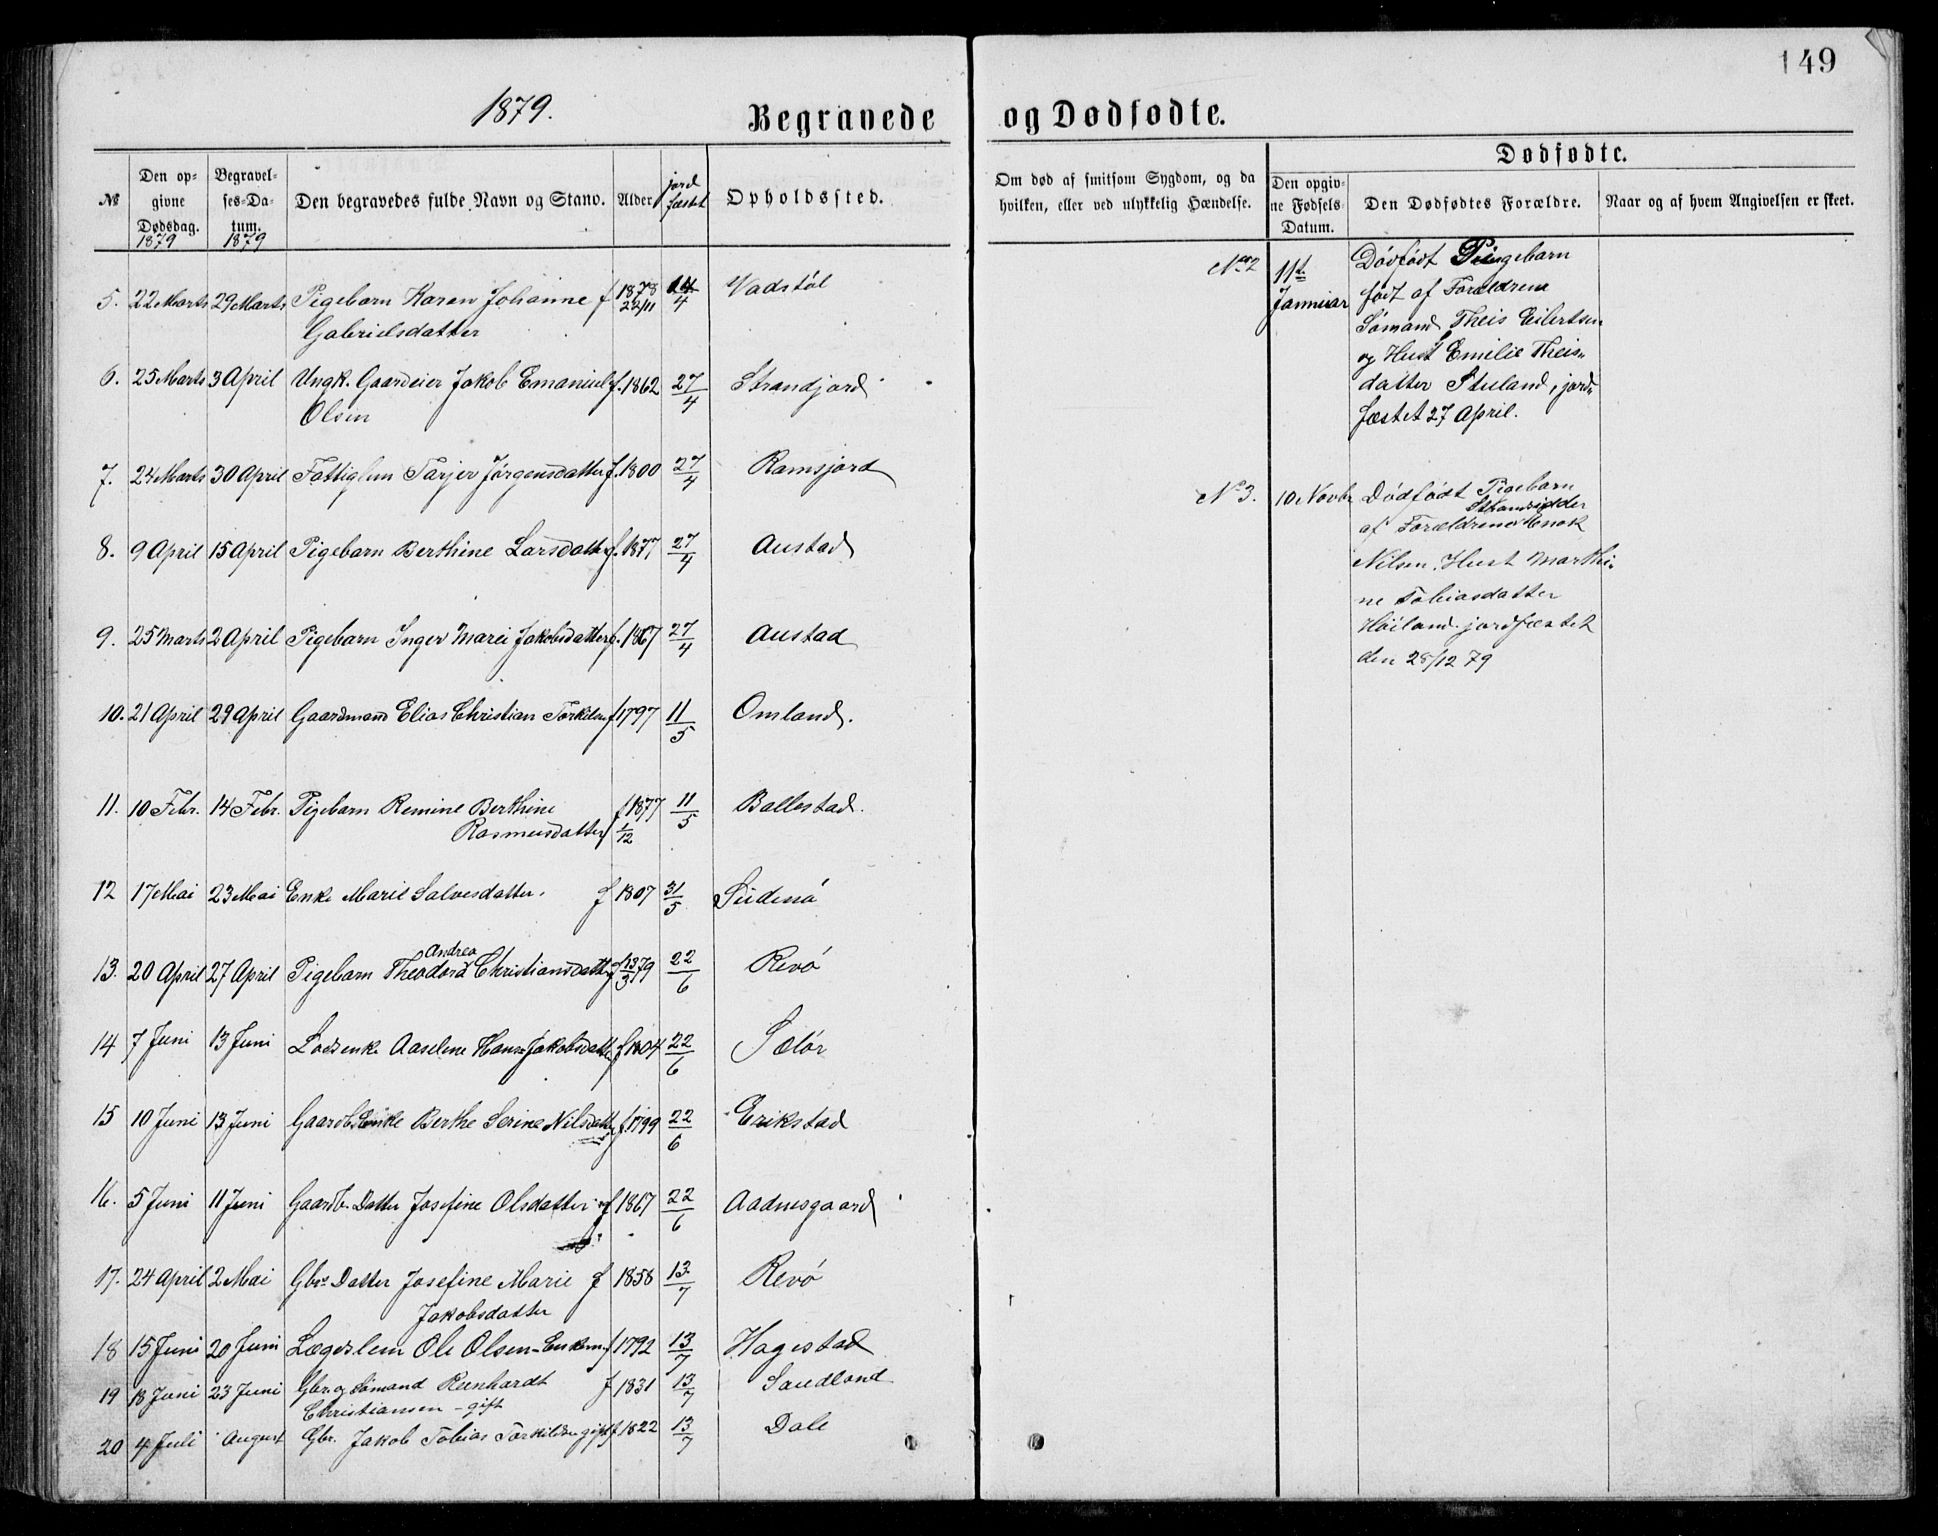 149
1879.
Begravede og Dødfødte.
№ Den opgivne Dødsdag. 1879 Begravelses-Datum. 1879 Den begravedes fulde Navn og Stand. Alder jordfæstet Opholdssted.
5. 22 Marts 29 Marts Pigebarn Karen Johanne f 1878 22/11 /4 Vadstøl
Gabrielsdatter
6. 25 Marts 3 April Ungk. Gaardeier Jakob Emanuel f. 1862 27/4 Strandjord
Olsen
7. 24 Marts 30 April Fattiglem Tarjer Jørgensdatter f. 1800 27/4 Ramsjord
8. 9 April 15 April Pigebarn Berthine Larsdatter f. 1877 27/4 Austad
9. 25 Marts 2 April Pigebarn Inger Marei Jakobsdatter f. 1867 27/4 Austad
10. 21 April 29 April Gaardmand Elias Christian Torkilsen f 1797 11/5 Omland.
11. 10 Febr. 14 Febr. Pigebarn Remine Berthine f 1877 11/5 Ballestad.
Rasmusdatter 1/12
12 17 Mai 23 Mai Enke Marie Salvesdatter. f 1807 31/5
Andrea
13. 20 April 27 April Pigebarn Theodora Christiansdatt f 13/3 79 22/6 Revø
14 7 Juni 13 Juni Lodsenke Aaselene Hans Jakobsdatte f 1804 22/6 Sælør
15 10 Juni 13 Juni Gaardb. Enke Berthe Serine Nilsdatt f. 1799 22/6 Erikstad
16. 5 Juni 11 Juni Gaardb. Datter Josefine Olsdatter f 1867 22/6 Aadnesgaard
17. 24 April 2 Mai Gbrs Datter Josefine Marie f 1858 13/7 Revø
Jakobsdatter
18 15 Juni 20 Juni Lægdslem Ole Olsen - Enkem. f 1792 13/7 Hagestad
19 18 Juni 23 Juni Gbr. og Sømand Reenhardt f 1831 13/7 Sandland
Christiansen - gift
20 4 Juli August Gbr. Jakob Tobias Torkildsen gift f 1822 13/7 Dale
Om død af smitsom Sygdom, og da hvilken, eller ved ulykkelig Hændelse.
Dødfødte.
Den opgivne Fødsels-Datum. Den Dødfødtes Forældre. Naar og af hvem Angivelsen er skeet.
No 2 11te Januar Dødfødt Pigebarn
født af Forældrene
Sømand Theis Eilertsen
og Hust Emilie Theis-
datter Stuland, jord-
fæstet 27 April.
No 3. 10 Novbr Dødfødt Pigebarn
af Forældrene Enok
Nilsen. Hust Marthi-
ne Tobiasdatter
Høiland. jordfæstet
den 28/12 79